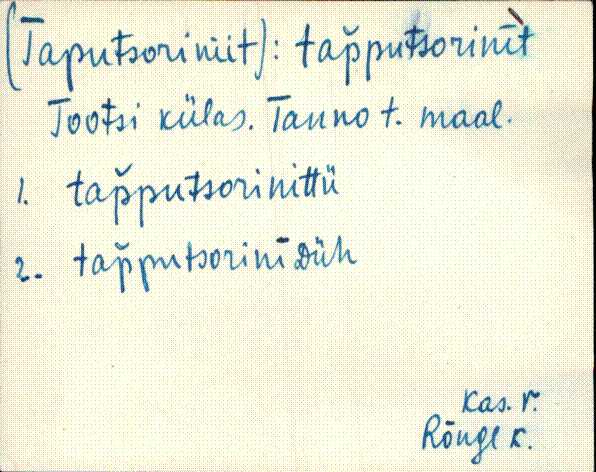 (Taputsoriniit): tap̆putsorinī̀t
Tootsi külas. Tanno t. maal.
1. tap̆putsorinittü
2. tap̆putsorinīDüh
Kas. r.
Rõuge k.